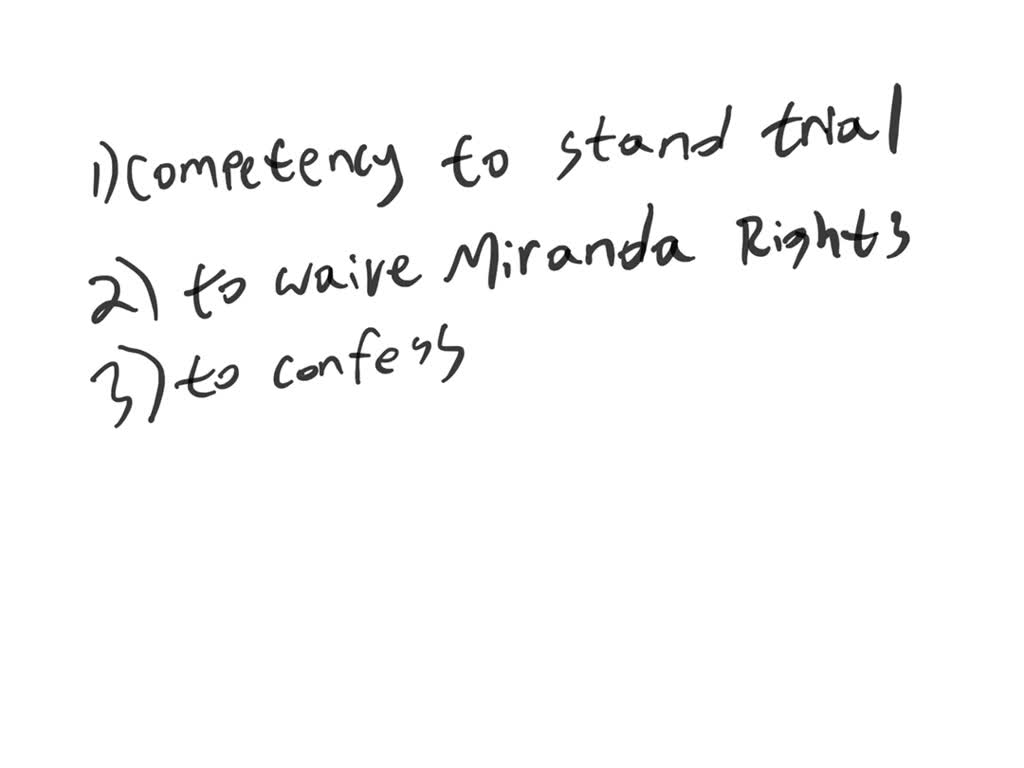 1) Competency to stand trial
2) to waive Miranda Rights
3) to confess